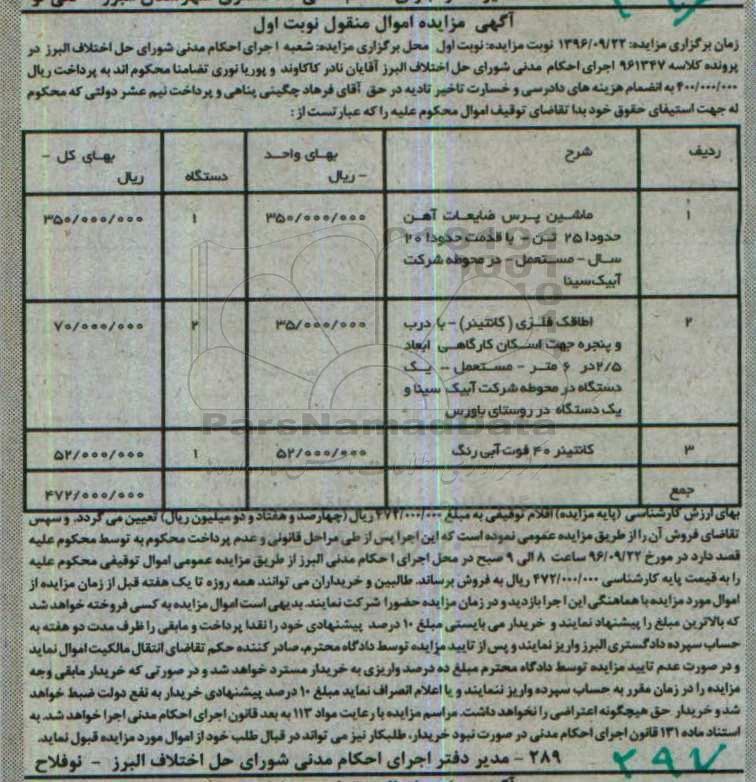 آگهی مزایده اموال منقول نوبت اول
زمان برگزاری مزایده: ۱۳۹۶/۰۹/۲۲ نوبت مزایده: نوبت اول محل برگزاری مزایده: شعبه اجرای احکام مدنی شورای حل اختلاف البرز در
پرونده کلاسه ۹۶۱۳۴۷ اجرای احکام مدنی شورای حل اختلاف البرز آقایان نادر کاکاوند و پوریا نوری تضامنا محکوم اند به پرداخت ریال
۴۰۰/۰۰۰/۰۰۰ به انضمام هزینه های دادرسی و خسارت تاخیر تادیه در حق آقای فرهاد چگینی پناهی و پرداخت نیم عشر دولتی که محکوم
له جهت استیفای حقوق خود بدا تقاضای توقیف اموال محکوم علیه را که عبارتست از:
ردیف شرح بهای واحد – ریال دستگاه بهای کل – ریال
۱ ماشین پرس ضایعات آهن ۳۵۰/۰۰۰/۰۰۰ ۱ ۳۵۰/۰۰۰/۰۰۰
حدودا ۲۵ تن – با قدمت حدودا ۲۰
سال – مستعمل – در محوطه شرکت
آبیک سینا
۲ اطاقک فلزی (کانتینر) – با درب ۳۵/۰۰۰/۰۰۰ ۲ ۷۰/۰۰۰/۰۰۰
و پنجره جهت اسکان کارگاهی ابعاد
۲/۵ در ۶ متر – مستعمل – یک
دستگاه در محوطه شرکت آبیک سینا و
یک دستگاه در روستای یاورس
۳ کانتینر ۴۰ فوت آبی رنگ ۵۲/۰۰۰/۰۰۰ ۱ ۵۲/۰۰۰/۰۰۰
جمع ۴۷۲/۰۰۰/۰۰۰
ParsNamadData
بهای ارزش کارشناسی (پایه مزایده) اقلام توقیفی به مبلغ ۴۷۲/۰۰۰/۰۰۰ ریال (چهارصد و هفتاد و دو میلیون ریال) تعیین می گردد. و سپس
تقاضای فروش آن را از طریق مزایده عمومی نموده است که این اجرا پس از طی مراحل قانونی و عدم پرداخت محکوم به توسط محکوم علیه
قصد دارد در مورخ ۹۶/۰۹/۲۲ ساعت ۸ الی ۹ صبح در محل اجرای احکام مدنی البرز از طریق مزایده عمومی اموال توقیفی محکوم علیه
را به قیمت پایه کارشناسی ۴۷۲/۰۰۰/۰۰۰ ریال به فروش برساند. طالبین و خریداران می توانند همه روزه تا یک هفته قبل از زمان مزایده از
اموال مورد مزایده با هماهنگی این اجرا بازدید و در زمان مزایده حضورا شرکت نمایند. بدیهی است اموال مزایده به کسی فروخته خواهد شد
که بالاترین مبلغ را پیشنهاد نمایند و خریدار می بایستی مبلغ ۱۰ درصد پیشنهادی خود را نقدا پرداخت و مابقی را ظرف مدت دو هفته به
حساب سپرده دادگستری البرز واریز نمایند و پس از تایید مزایده توسط دادگاه محترم، صادر کننده حکم تقاضای انتقال مالکیت اموال نماید
و در صورت عدم تایید مزایده توسط دادگاه محترم مبلغ ده درصد واریزی به خریدار مسترد خواهد شد و در صورتی که خریدار مابقی وجه
مزایده را در زمان مقرر به حساب سپرده واریز ننمایند و یا اعلام انصراف نماید مبلغ ۱۰ درصد پیشنهادی خریدار به نفع دولت ضبط خواهد
شد و خریدار حق هیچگونه اعتراضی را نخواهد داشت. مراسم مزایده با رعایت مواد ۱۱۳ به بعد قانون اجرای احکام مدنی اجرا خواهد شد. به
استناد ماده ۱۳۱ قانون اجرای احکام مدنی در صورت نبود خریدار، طلبکار نیز می تواند در قبال طلب خود از اموال مورد مزایده قبول نماید.
۲۸۹ – مدیر دفتر اجرای احکام مدنی شورای حل اختلاف البرز – نوفلاح
۲۹۷